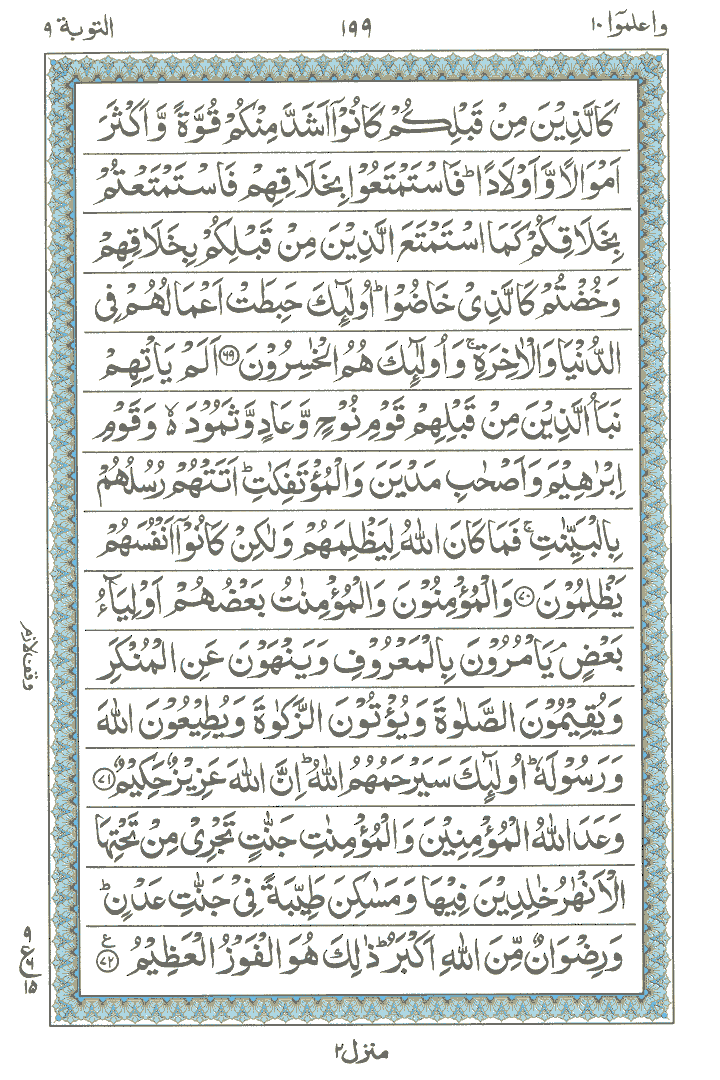 واعلموا ۱۰
۱۹۹
التوبة ۹
كَالَّذِيْنَ مِنْ قَبْلِكُمْ كَانُوْۤا اَشَدَّ مِنْكُمْ قُوَّةً وَّ اَكْثَرَ
اَمْوَالًا وَّ اَوْلَادًا ؕ فَاسْتَمْتَعُوْا بِخَلَاقِهِمْ فَاسْتَمْتَعْتُمْ
بِخَلَاقِكُمْ كَمَا اسْتَمْتَعَ الَّذِيْنَ مِنْ قَبْلِكُمْ بِخَلَاقِهِمْ
وَخُضْتُمْ كَالَّذِيْ خَاضُوْا ؕ اُولٰٓئِكَ حَبِطَتْ اَعْمَالُهُمْ فِي
الدُّنْيَا وَالْاٰخِرَةِ ۚ وَ اُولٰٓئِكَ هُمُ الْخٰسِرُوْنَ ۶۹ اَلَمْ يَاْتِهِمْ
نَبَاُ الَّذِيْنَ مِنْ قَبْلِهِمْ قَوْمِ نُوْحٍ وَّعَادٍ وَّثَمُوْدَ ۙ وَقَوْمِ
اِبْرٰهِيْمَ وَاَصْحٰبِ مَدْيَنَ وَالْمُؤْتَفِكٰتِ ؕ اَتَتْهُمْ رُسُلُهُمْ
بِالْبَيِّنٰتِ ۚ فَمَا كَانَ اللّٰهُ لِيَظْلِمَهُمْ وَلٰكِنْ كَانُوْۤا اَنْفُسَهُمْ
يَظْلِمُوْنَ ۷۰ وَالْمُؤْمِنُوْنَ وَالْمُؤْمِنٰتُ بَعْضُهُمْ اَوْلِيَآءُ
بَعْضٍ ۘ يَاْمُرُوْنَ بِالْمَعْرُوْفِ وَيَنْهَوْنَ عَنِ الْمُنْكَرِ
وَيُقِيْمُوْنَ الصَّلٰوةَ وَيُؤْتُوْنَ الزَّكٰوةَ وَيُطِيْعُوْنَ اللّٰهَ
وَرَسُوْلَهٗ ؕ اُولٰٓئِكَ سَيَرْحَمُهُمُ اللّٰهُ ؕ اِنَّ اللّٰهَ عَزِيْزٌ حَكِيْمٌ ۷۱
وَعَدَ اللّٰهُ الْمُؤْمِنِيْنَ وَالْمُؤْمِنٰتِ جَنّٰتٍ تَجْرِيْ مِنْ تَحْتِهَا
الْاَنْهٰرُ خٰلِدِيْنَ فِيْهَا وَمَسٰكِنَ طَيِّبَةً فِيْ جَنّٰتِ عَدْنٍ ؕ
وَرِضْوَانٌ مِّنَ اللّٰهِ اَكْبَرُ ؕ ذٰلِكَ هُوَ الْفَوْزُ الْعَظِيْمُ ع ۷۲
وقف لازم
۹
ع ۶
۱۵
منزل ۲